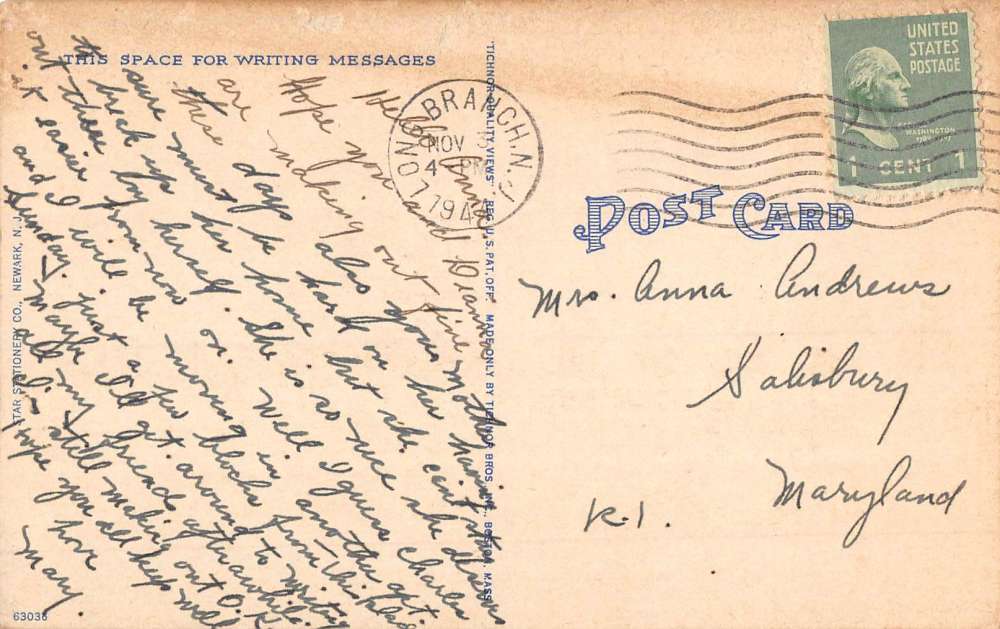 THIS SPACE FOR WRITING MESSAGES
Hello Anna. 10 am
Hope you and mother
are making out fine
these days also yours having
sure must be hard on her
to be home but she can't
pick up by herself. She is so nice she deserves
out there from now on. Well I guess Charles
it easier I will be moving in another apt.
and Sunday. just a few blocks from this place
Maybe I'll get around to writing
all my friends after awhile.
I'm still making out O.K.
hope you all keep well
Love
Mary.
LONG BRANCH, N.J.
NOV
4 PM
194
UNITED
STATES
POSTAGE
WASHINGTON
1 CENT 1
POST CARD
Mrs. Anna Andrews
Salisbury
Maryland
R.1.
"TICHNOR QUALITY VIEWS" REG. U.S. PAT. OFF. MADE ONLY BY TICHNOR BROS. INC., BOSTON, MASS.
STAR STATIONERY CO., NEWARK, N. J.
63035